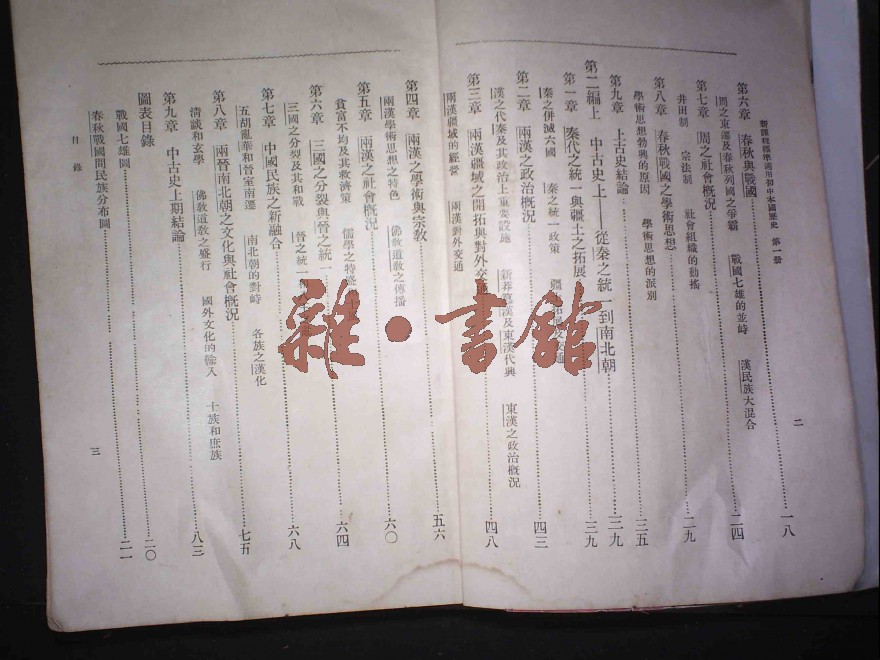 新課程標準適用初中本國歷史 第一冊
二
第六章 春秋與戰國 一八
周之東遷及春秋列國之爭霸 戰國七雄的並峙 漢民族大混合
第七章 周之社會概況 二四
井田制 宗法制 社會組織的動搖
第八章 春秋戰國之學術思想 二九
學術思想勃興的原因 學術思想的派別
第九章 上古史結論 三五
第二編上 中古史上——從秦之統一到南北朝 三九
第一章 秦代之統一與疆土之拓展 三九
秦之併滅六國 秦之統一政策
第二章 兩漢之政治概況 四三
漢之代秦及其政治上重要設施 新莽篡漢及東漢代興 東漢之政治概況
第三章 兩漢疆域之開拓與對外交通 四八
兩漢疆域的經營 兩漢對外交通
第四章 兩漢之學術與宗教 五六
兩漢學術思想之特色 儒學之特盛 佛教道教之傳播
第五章 兩漢之社會概況 六〇
貧富不均及其救濟策
第六章 三國之分裂與晉之統一 六四
三國之分裂及其和戰 晉之統一
第七章 中國民族之新融合 六八
五胡亂華和晉室南遷 南北朝的對峙 各族之漢化
第八章 兩晉南北朝之文化與社會概況 七五
清談和玄學 佛教道教之盛行 國外文化的輸入 士族和庶族
第九章 中古史上期結論 八三
圖表目錄
戰國七雄圖 二〇
春秋戰國間民族分布圖 二一
目錄
三
雜·書館